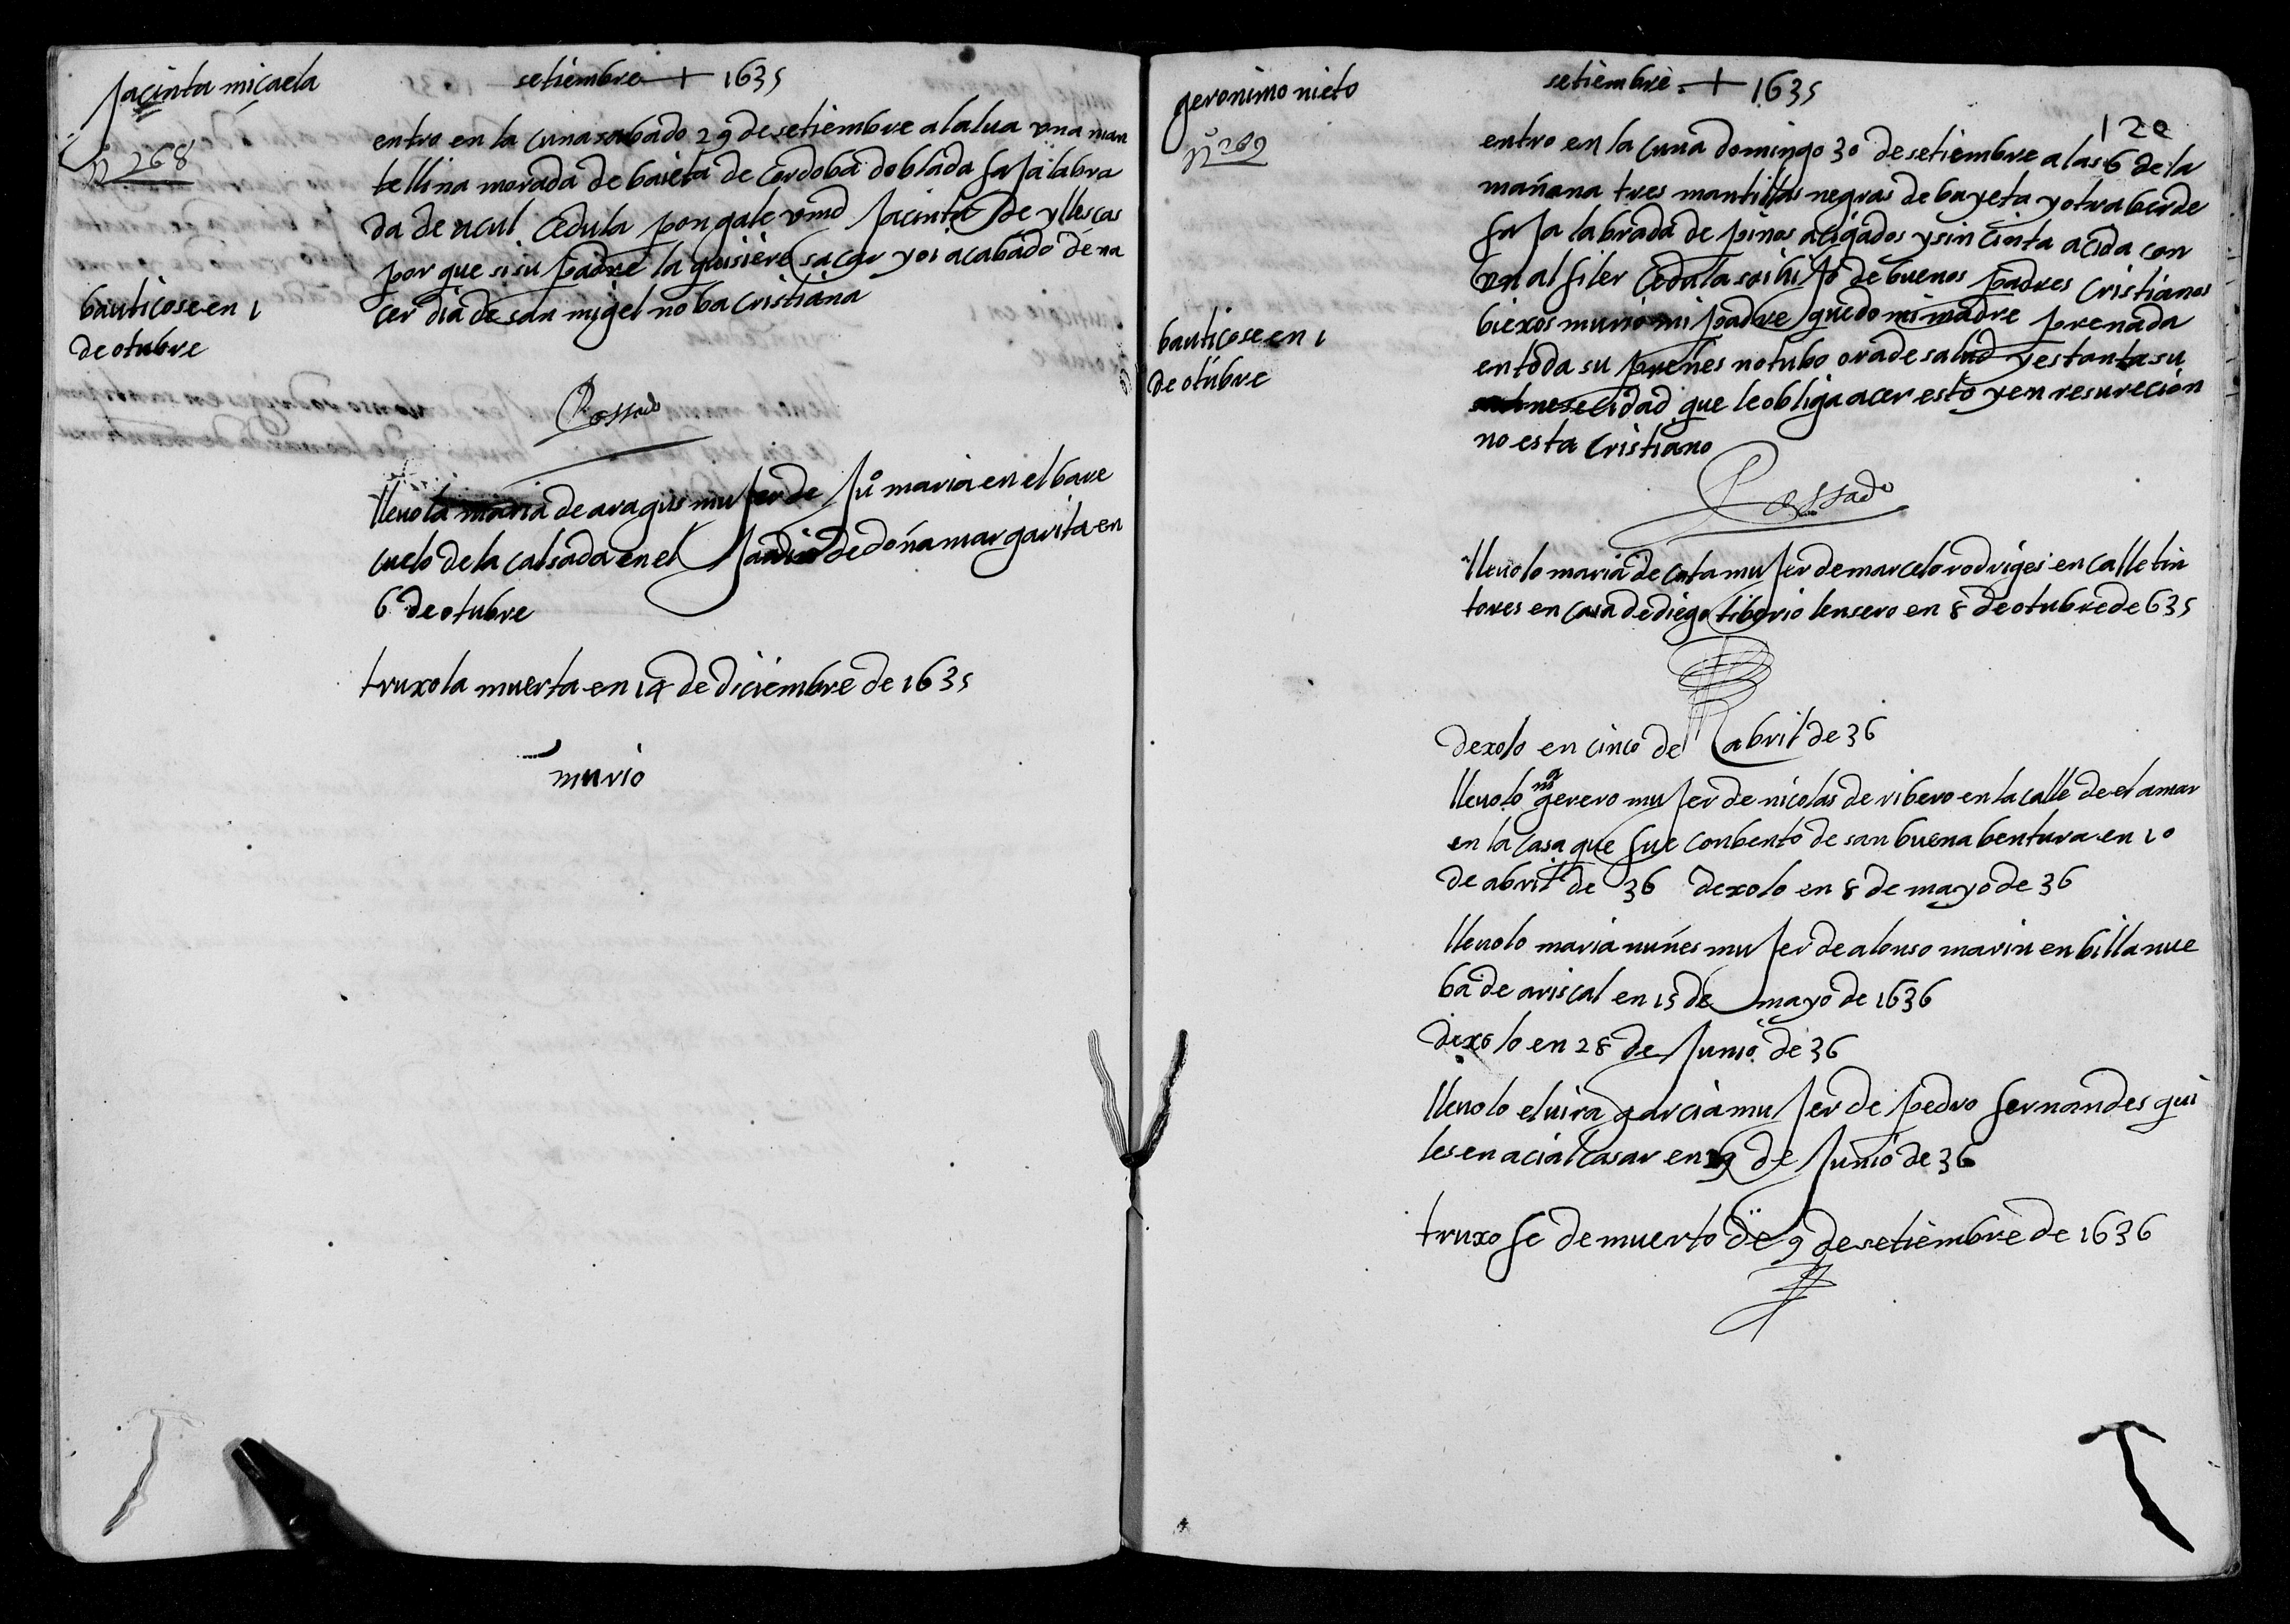 Jacinta micaela
nº 268
bauticose en 1
de otubre
setiembre + 1635
entro en la cuna sabado 29 de setiembre al alua una man
tellina morada de baieta de cordoba doblada faja labra
da de acul cedula pongale vmd Jacinta de yllescas
por que si su padre la quisiere sacar yoi acabado de na
cer dia de san migel no ba cristiana
Possado
lleuola maria de aragus mujer de juº maria en el bare
cuelo de la calsada en el Jardin de doña margarita en
6 de otubre
truxola muerta en 14 de diciembre de 1635
murio
geronimo nieto
nº 269
bauticose en 1
de otubre
setiembre + 1635
120
entro en la cuna domingo 30 de setiembre a las 6 de la
mañana tres mantillas negras de bayeta y otra berde
faja labrada de pinos aligados y sin cinta acida con
un alfiler cedula soi hijo de buenos padres cristianos
biexos murio mi padre quedo mi madre prenada
en toda su prenes no tubo ora de salud y es tanta su
neselidad que le obliga acer esto y en resurecion
no esta cristiano
Possado
lleuolo maria de cota mujer de marcelo rodriges en calle tin
tores en casa de diego tiborio lensero en 8 de otubre de 635
dexolo en cinco de abril de 36
lleuolo gerero mujer de nicolas de ribero en la calle de el amar
en la casa que fue conbento de san buena bentura en 10
de abril de 36 dexolo en 8 de mayo de 36
lleuolo maria nuñes mujer de alonso marin en billanue
ba de ariscal en 15 de mayo de 1636
dexolo en 28 de Junio de 36
lleuolo eluira garcia mujer de pedro fernandes qui
les en acialcasar en 29 de Junio de 36
truxo fe de muerto de 9 de setiembre de 1636